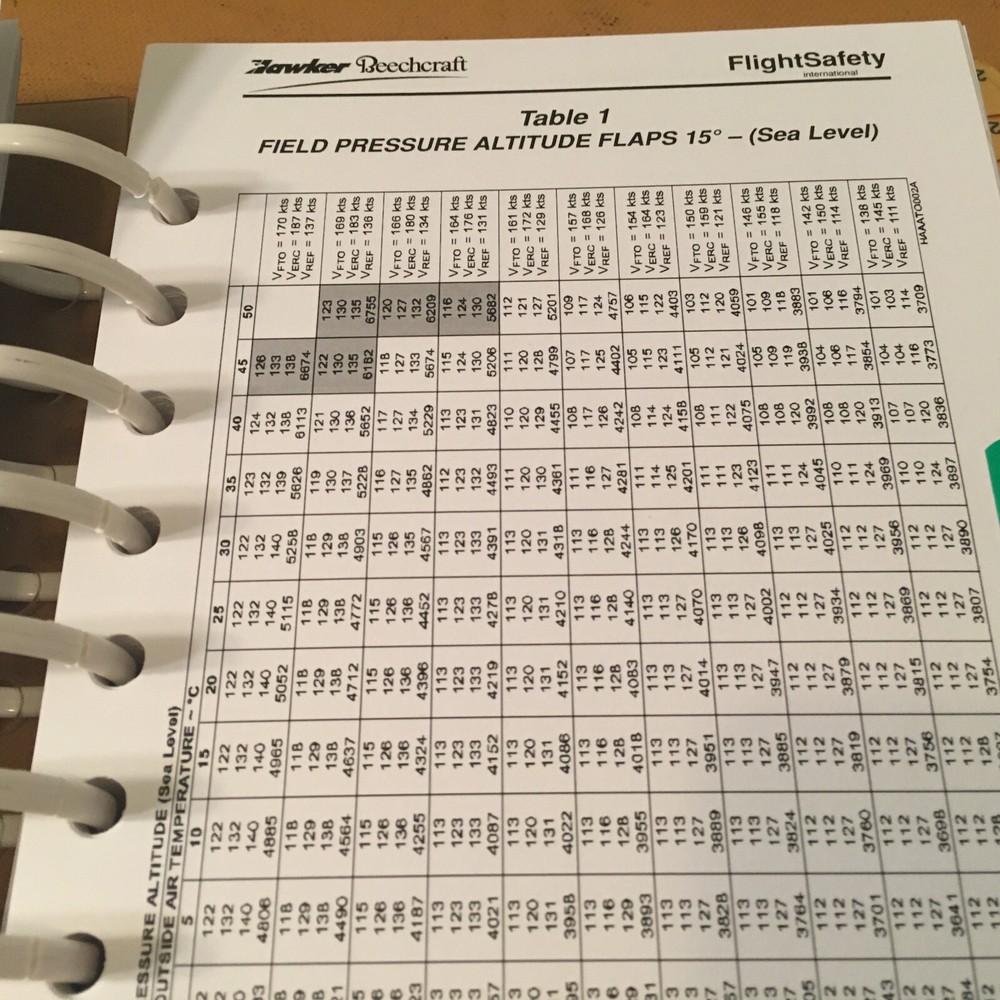 Hawker Beechcraft
FlightSafety
international
Table 1
FIELD PRESSURE ALTITUDE FLAPS 15° – (Sea Level)
ESSURE ALTITUDE (Sea Level)
OUTSIDE AIR TEMPERATURE ~ °C
5 10 15 20 25 30 35 40 45 50
122 122 122 122 122 122 123 124 126 VFTO = 170 kts
132 132 132 132 132 132 132 132 133 VERC = 187 kts
140 140 140 140 140 140 139 138 138 VREF = 137 kts
4806 4885 4965 5052 5115 5258 5626 6113 6674
118 118 118 118 118 118 119 121 122 123 VFTO = 169 kts
129 129 129 129 129 129 130 130 130 130 VERC = 183 kts
138 138 138 138 138 138 137 136 135 135 VREF = 136 kts
4490 4564 4637 4712 4772 4903 5228 5652 6182 6755
115 115 115 115 115 115 116 117 118 120 VFTO = 166 kts
126 126 126 126 126 126 127 127 127 127 VERC = 180 kts
136 136 136 136 136 135 135 134 133 132 VREF = 134 kts
4187 4255 4324 4396 4452 4567 4862 5229 5674 6209
113 113 113 113 113 113 112 113 115 116 VFTO = 164 kts
123 123 123 123 123 123 123 123 124 124 VERC = 176 kts
133 133 133 133 133 133 132 131 130 130 VREF = 131 kts
4021 4087 4152 4219 4278 4391 4493 4823 5206 5682
113 113 113 113 113 113 111 110 111 112 VFTO = 161 kts
120 120 120 120 120 120 120 120 120 121 VERC = 172 kts
131 131 131 131 131 131 130 129 128 127 VREF = 129 kts
3958 4022 4086 4152 4210 4318 4361 4455 4799 5201
113 113 113 113 113 113 111 108 107 109 VFTO = 157 kts
116 116 116 116 116 116 116 117 117 117 VERC = 168 kts
129 128 128 128 128 128 127 126 125 124 VREF = 126 kts
3893 3955 4018 4083 4140 4244 4281 4242 4402 4757
113 113 113 113 113 113 111 108 105 106 VFTO = 154 kts
113 113 113 113 113 113 114 114 115 115 VERC = 164 kts
127 127 127 127 127 126 125 124 123 122 VREF = 123 kts
3828 3889 3951 4014 4070 4170 4201 4158 4111 4403
113 113 113 113 113 113 111 108 105 103 VFTO = 150 kts
113 113 113 113 113 113 111 111 112 112 VERC = 159 kts
127 127 127 127 127 126 123 122 121 120 VREF = 121 kts
3764 3824 3885 3947 4002 4098 4123 4075 4024 4059
112 112 112 112 112 113 111 108 105 101 VFTO = 146 kts
112 112 112 112 112 113 111 108 109 109 VERC = 155 kts
127 127 127 127 127 127 124 120 119 118 VREF = 118 kts
3701 3760 3819 3879 3934 4025 4045 3992 3938 3883
112 112 112 112 112 112 110 108 104 101 VFTO = 142 kts
112 112 112 112 112 112 111 108 106 106 VERC = 150 kts
127 127 127 127 127 127 124 120 117 116 VREF = 114 kts
3641 3698 3756 3815 3869 3956 3969 3913 3854 3794
112 112 112 112 112 112 110 107 104 101 VFTO = 138 kts
112 112 112 112 112 112 110 107 104 103 VERC = 145 kts
128 128 127 127 127 124 120 116 114 VREF = 111 kts
3754 3807 3890 3897 3836 3773 3709
HAAATO002A